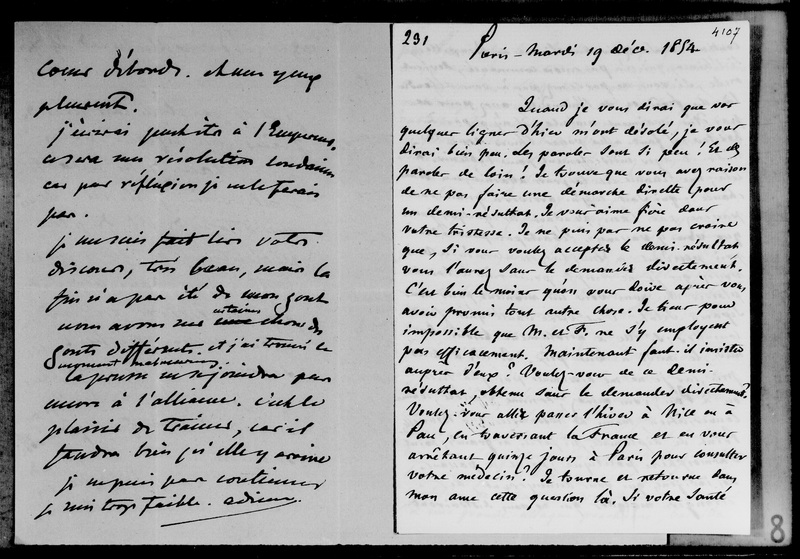 Coeur déborde. et mes yeux
pleurent.
j'écrirai peut être à l'Empereur,
ce sera une résolution soudaine
car par réfléxion je ne le ferais
pas.
je me suis fait lire votre
discours, très beau, mais la
fin n'a pas été de mon gout
nous avons sur certaines choses des
gouts différents. et j'ai trouvé le
La prusse ne se joindra pas
encore à l'alliance. c'est le
plaisir de trainer, car il
faudra bien qu'elle y arrive
je ne puis pas continuer
je suis trop faible. adieu.
231
4107
Paris - Mardi 19 Déc. 1854
Quand je vous dirai que vos
quelques lignes d'hier m'ont désolé, je vous
dirai bien peu. Les paroles sont si peu ! Et des
paroles de loin ! Je trouve que vous avez raison
de ne pas faire une démarche directe pour
un demi-résultat. Je vous aime fière dans
votre tristesse. Je ne puis pas ne pas croire
que, si vous voulez accepter le demi-résultat
vous l'aurez sans le demander directement.
C'est bien le moins qu'on vous doive après vous
avoir promis tout autre chose. Je tiens pour
impossible que M. et F. ne s'y employent
pas efficacement. Maintenant faut-il insister
auprès d'eux ? Voulez-vous de ce demi-
résultat, obtenu sans le demander directement ?
Voulez-vous aller passer l'hiver à Nice ou à
Pau, en traversant la France et en vous
arrêtant quinze jours à Paris pour consulter
votre médecin ? Je tourne et retourne dans
mon ame cette question là. Si votre santé
8